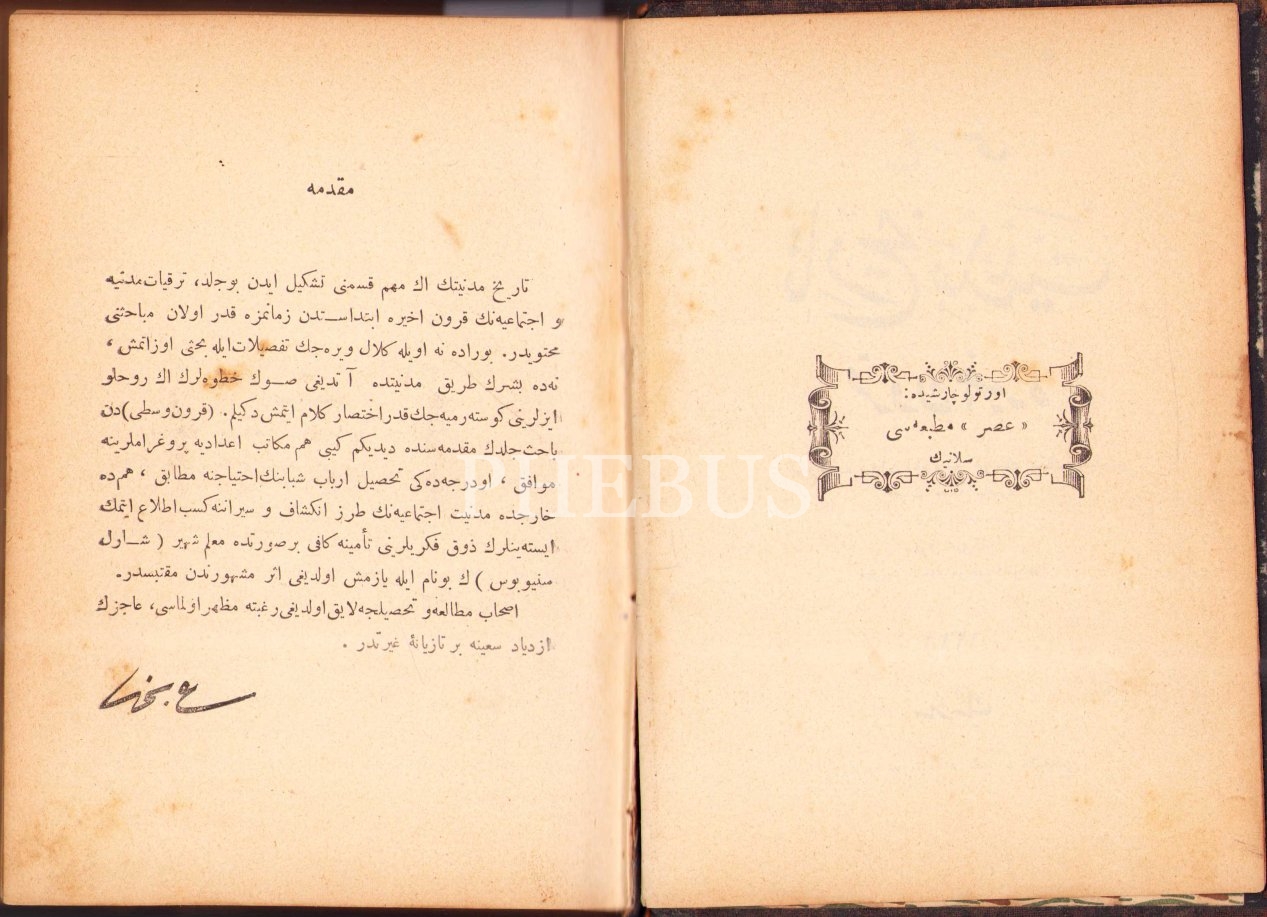 اورتولو چارشیده:
« عصر » مطبعه‌سی
سلانیك
مقدمه
تاریخ مدنیتك اك مهم قسمنی تشكیل ایدن بوجلد، ترقیات مدنیه
و اجتماعیه‌نك قرون اخیره ابتداسـتدن زمانمزه قدر اولان مباحثنی
محتویدر. بوراده نه اویله كلال ویره‌جك تفصیلات ایله بحثی اوزاتمش،
نه‌ده بشرك طریق مدنیتده آتدیغی صـوك خطوه‌لرك اك روحلو
ایزلرینی كوسته‌رمیه‌جك قدر اختصار كلام ایتمش دكیلم. (قرون وسطی) دن
باحث جلدك مقدمه‌سنده دیدیكم كیبی هم مكاتب اعدادیه پروغراملرینه
موافق، اودرجه‌ده‌كی تحصیل ارباب شبابنك احتیاجنه مطابق، هم‌ده
خارجده مدنیت اجتماعیه‌نك طرز انكشاف و سیراننه كسب اطلاع ایتمك
ایسته‌ینلرك ذوق فكریلرینی تأمینه كافی برصورتده معلم شهیر (شـارل
سنیوبوس) ك بونام ایله یازمش اولدیغی اثر مشهورندن مقتبسدر.
اصحاب مطالعه و تحصیلجه لایق اولدیغی رغبته مظهر اولماسی، عاجزك
ازدیاد سعینه بر تازیانهٔ غیرتدر.
PHEBUS